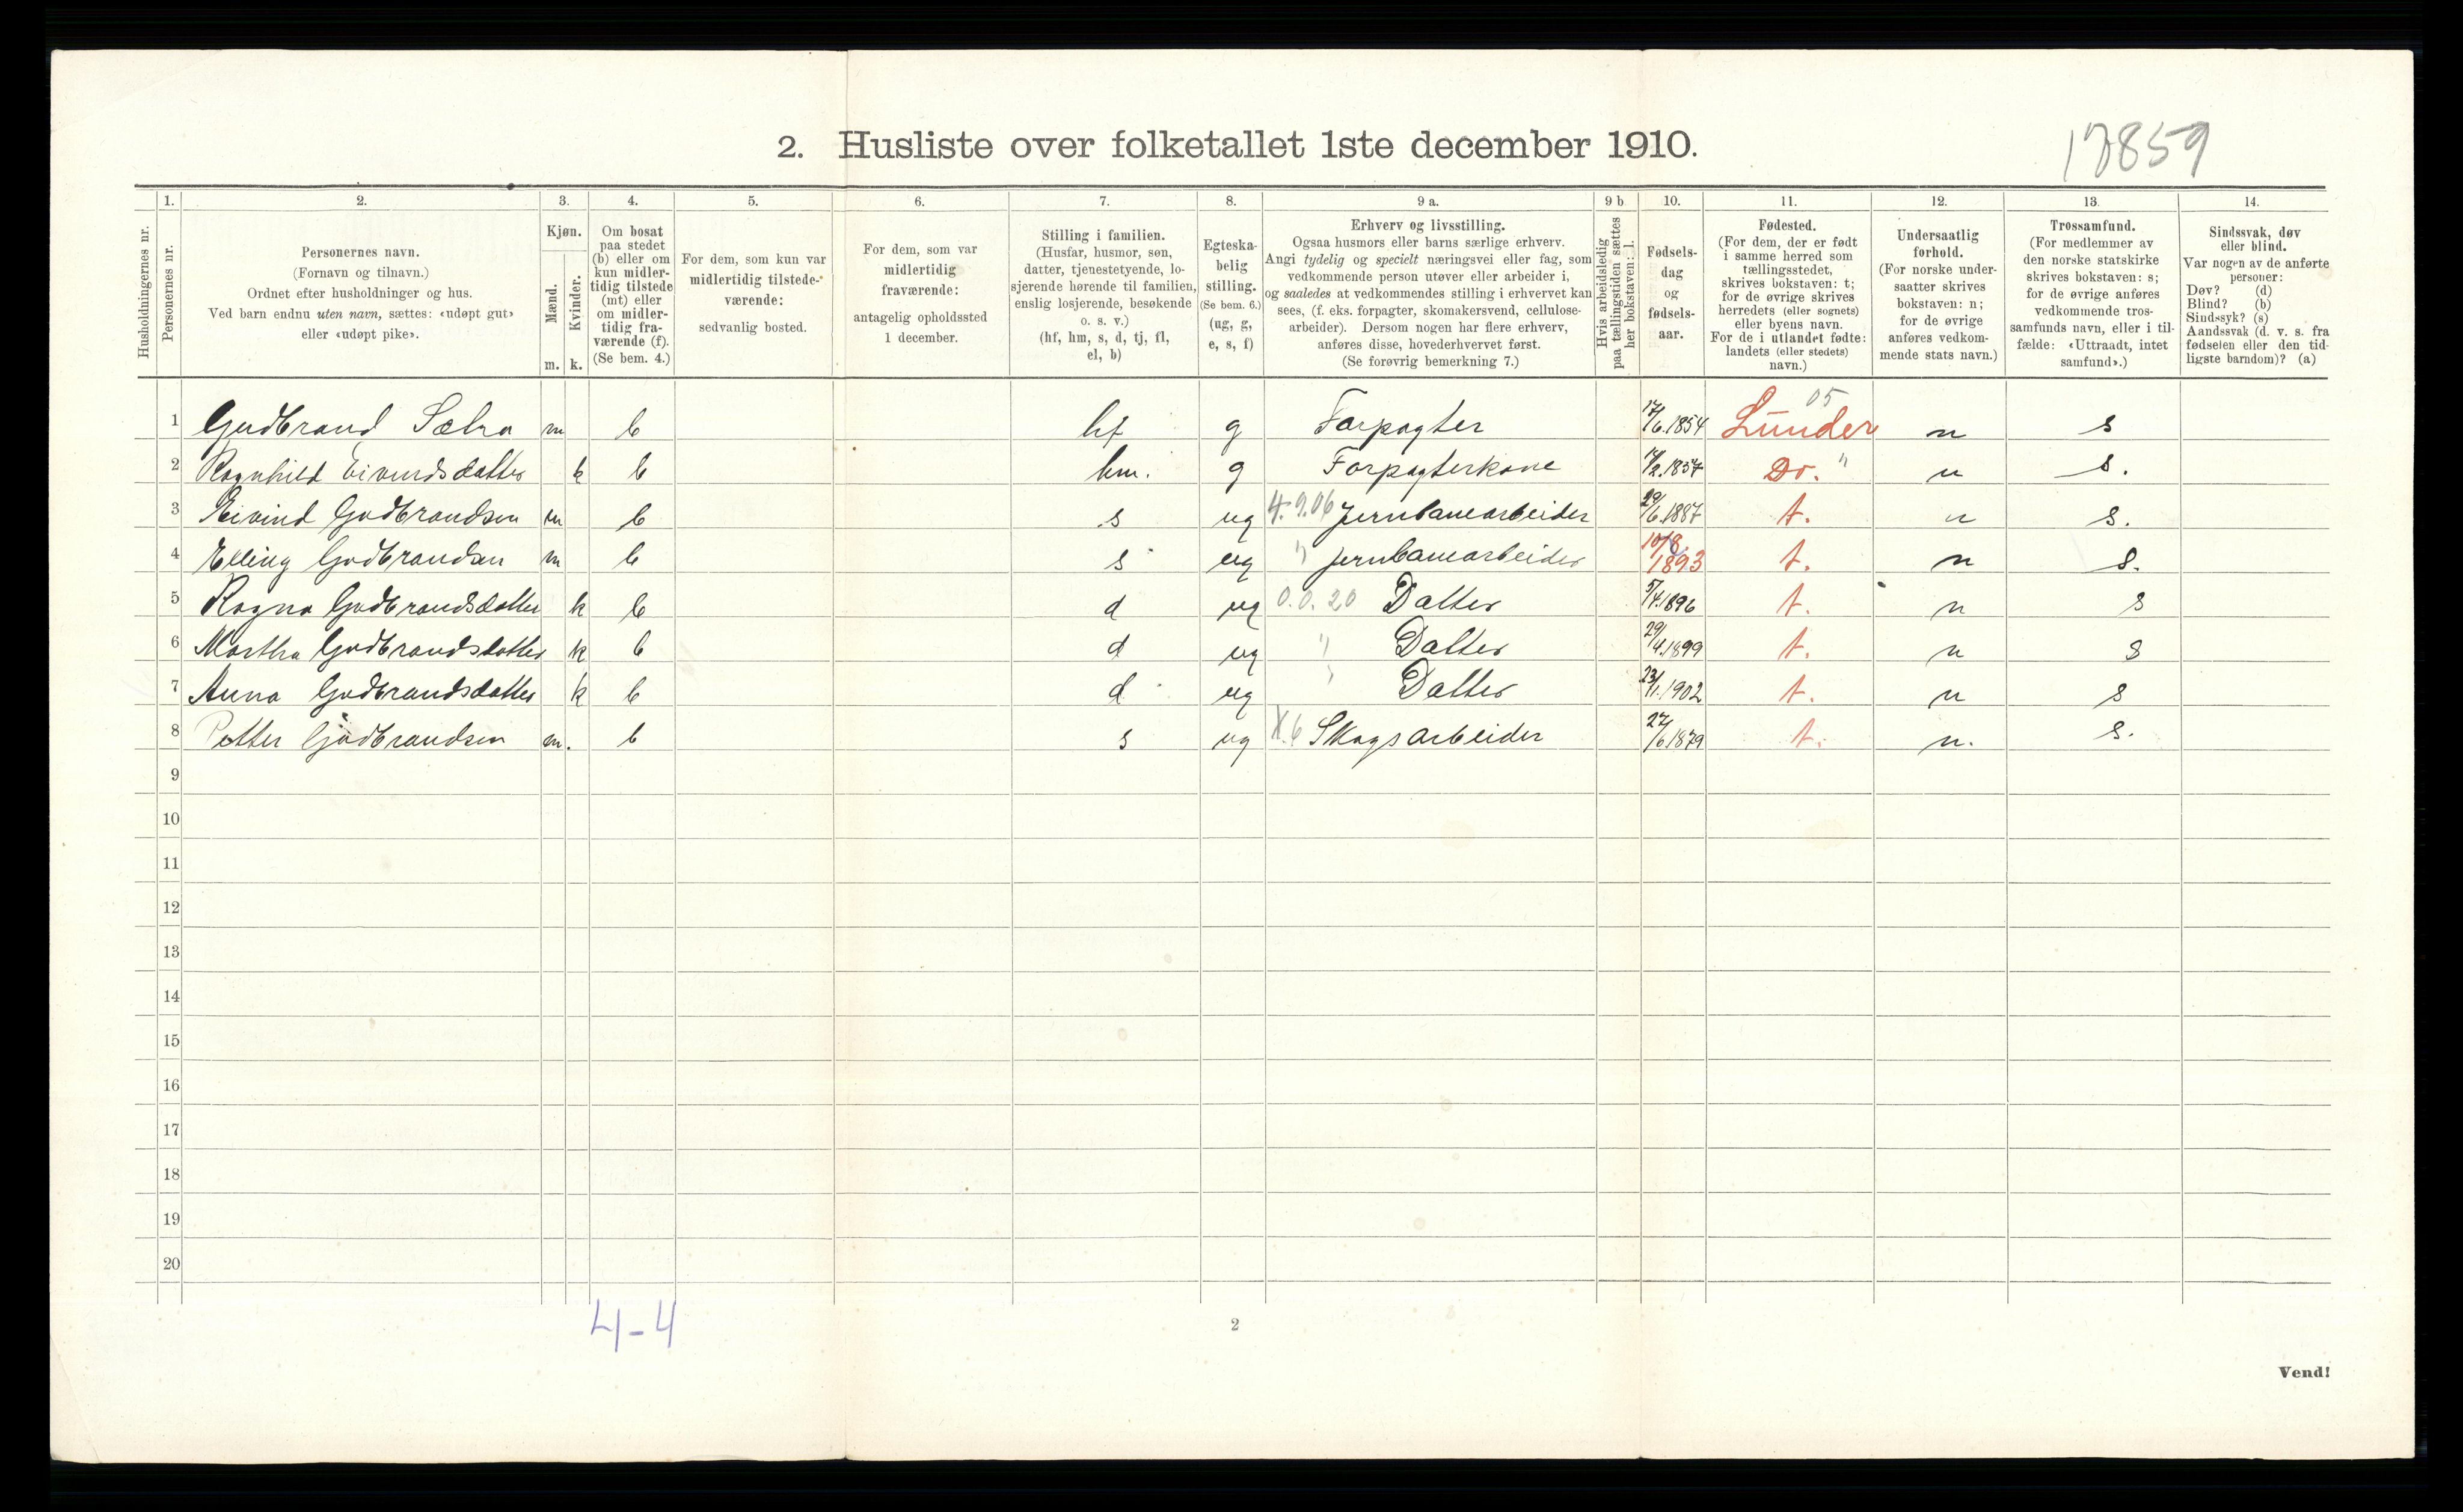 17859
2. Husliste over folketallet 1ste december 1910.
Husholdningernes nr.
1.
Personernes nr.
2.
Personernes navn.
(Fornavn og tilnavn.)
Ordnet efter husholdninger og hus.
Ved barn endnu uten navn, sættes: «udøpt gut»
eller «udøpt pike».
3.
Kjøn.
Mænd.
Kvinder.
m. k.
4.
Om bosat
paa stedet
(b) eller om
kun midler-
tidig tilstede
(mt) eller
om midler-
tidig fra-
værende (f).
(Se bem. 4.)
5.
For dem, som kun var
midlertidig tilstede-
værende:
sedvanlig bosted.
6.
For dem, som var
midlertidig
fraværende:
antagelig opholdssted
1 december.
7.
Stilling i familien.
(Husfar, husmor, søn,
datter, tjenestetyende, lo-
sjerende hørende til familien,
enslig losjerende, besøkende
o. s. v.)
(hf, hm, s, d, tj, fl,
el, b)
8.
Egteska-
belig
stilling.
(Se bem. 6.)
(ug, g,
e, s, f)
9 a.
Erhverv og livsstilling.
Ogsaa husmors eller barns særlige erhverv.
Angi tydelig og specielt næringsvei eller fag, som
vedkommende person utøver eller arbeider i,
og saaledes at vedkommendes stilling i erhvervet kan
sees, (f. eks. forpagter, skomakersvend, cellulose-
arbeider). Dersom nogen har flere erhverv,
anføres disse, hovederhvervet først.
(Se forøvrig bemerkning 7.)
9 b
Hvis arbeidsledig
paa tællingstiden sættes
her bokstaven: l.
10.
Fødsels-
dag
og
fødsels-
aar.
11.
Fødested.
(For dem, der er født
i samme herred som
tællingsstedet,
skrives bokstaven: t;
for de øvrige skrives
herredets (eller sognets)
eller byens navn.
For de i utlandet fødte:
landets (eller stedets)
navn.)
12.
Undersaatlig
forhold.
(For norske under-
saatter skrives
bokstaven: n;
for de øvrige
anføres vedkom-
mende stats navn.)
13.
Trossamfund.
(For medlemmer av
den norske statskirke
skrives bokstaven: s;
for de øvrige anføres
vedkommende tros-
samfunds navn, eller i til-
fælde: «Uttraadt, intet
samfund».)
14.
Sindssvak, døv
eller blind.
Var nogen av de anførte
personer:
Døv? (d)
Blind? (b)
Sindssyk? (s)
Aandssvak (d. v. s. fra
fødselen eller den tid-
ligste barndom)? (a)
05
1 Gudbrand Sælra m b hf g Forpagter 17/6.1854 Lunder n s
2 Ragnhild Eivindsdatter k b hm. g Forpagterkone 14/2.1857 Do. " n s.
3 Eivind Gudbrandsen m b s ug 4.9.06 Jernbanearbeider 29/6.1887 t. n s.
4 Elling Gudbrandsen m b s ug " Jernbanearbeider 10/8 1893 t. n s.
5 Ragna Gudbrandsdatter k b d ug 0.0.20 Datter 5/4.1896 t. n s
6 Martha Gudbrandsdatter k b d ug " Datter 29/4.1899 t. n s
7 Anna Gudbrandsdatter k b d ug " Datter 23/1.1902 t. n s
8 Petter Gudbrandsen m. b s ug X.6 Skogsarbeider 27/6.1879 t. n. s.
9
10
11
12
13
14
15
16
17
18
19
20
4-4
2
Vend!